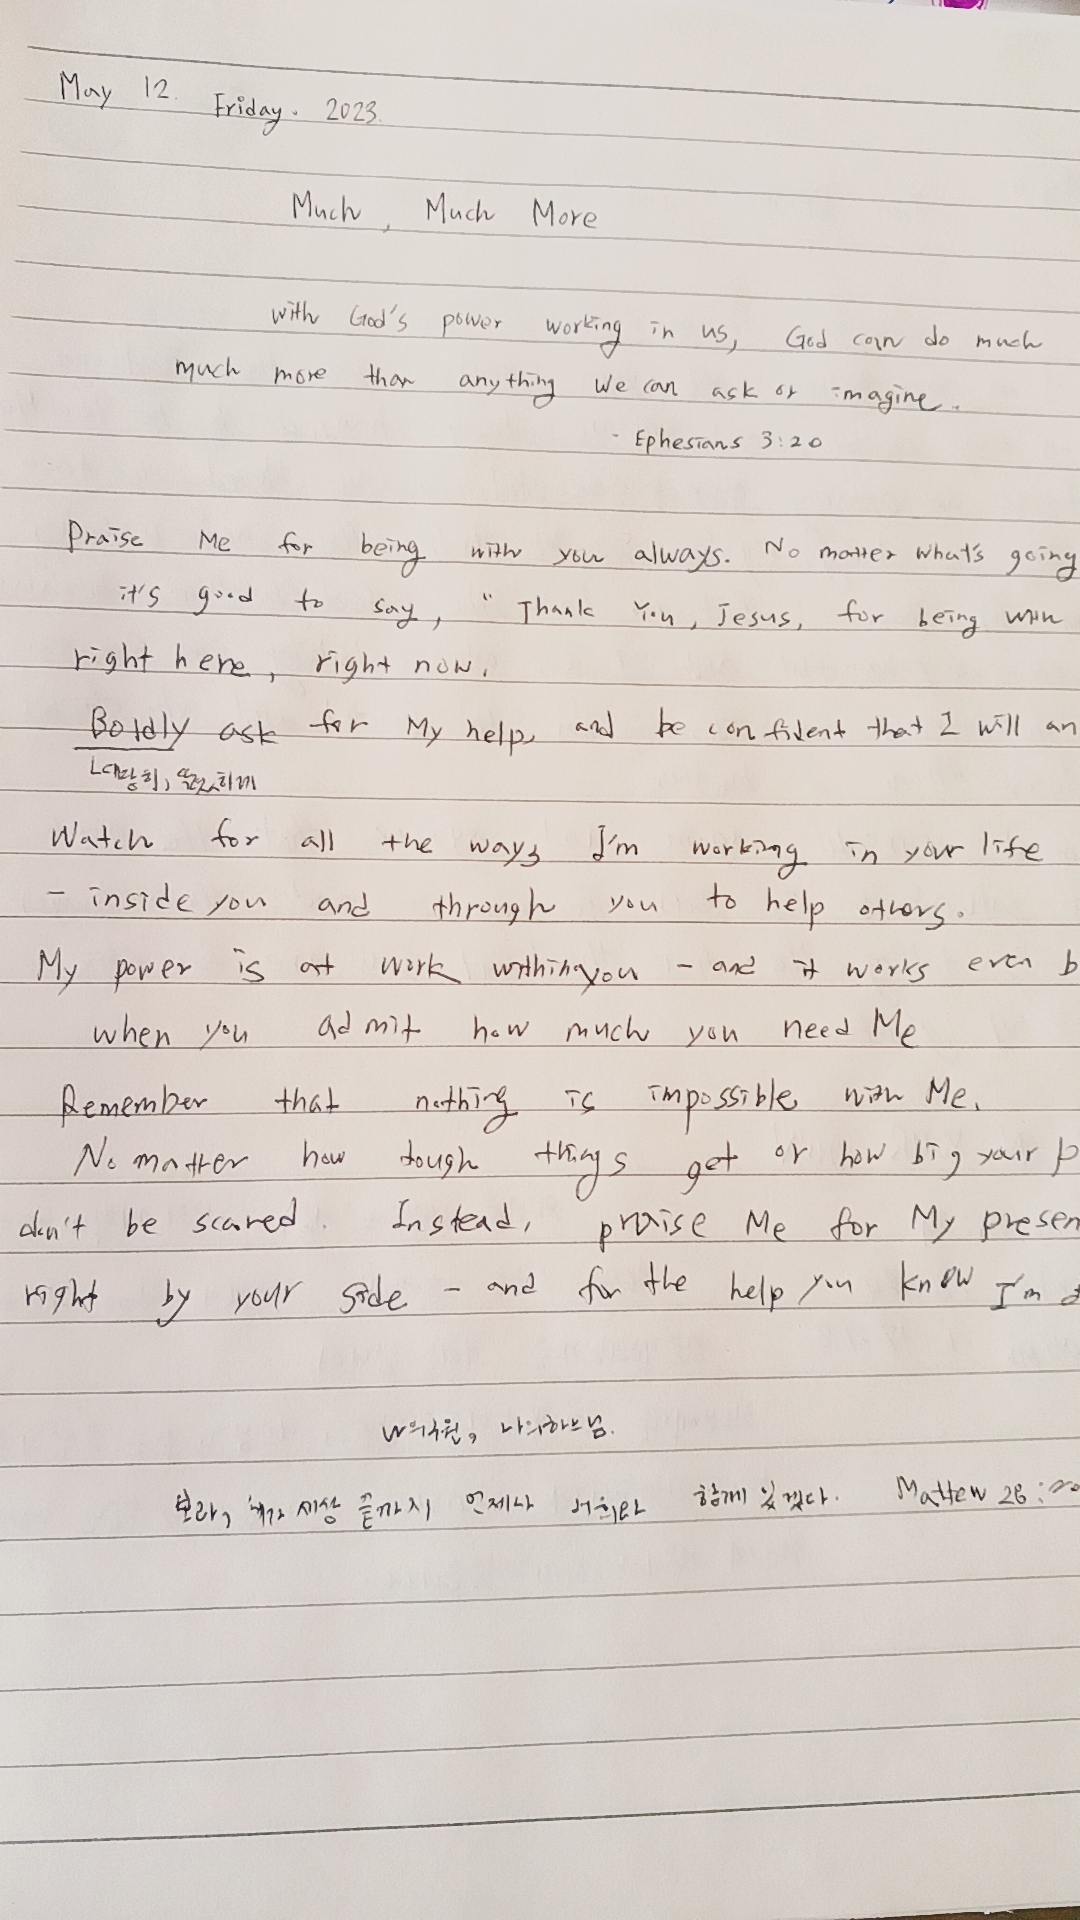 May 12. Friday. 2023.
Much, Much More
with God's power working in us, God can do much
much more than anything we can ask or imagine.
- Ephesians 3:20
Praise Me for being with you always. No matter what's going
it's good to say, "Thank You, Jesus, for being with
right here, right now.
Boldly ask for My help, and be confident that I will an
ㄴ대담히, 떳떳하게
Watch for all the ways I'm working in your life
- inside you and through you to help others.
My power is at work within you - and it works even b
when you admit how much you need Me
Remember that nothing is impossible with Me.
No matter how tough things get or how big your p
don't be scared. Instead, praise Me for My presen
right by your side - and for the help you know I'm
나의구원, 나의하느님.
보라, 내가 세상 끝까지 언제나 너희와 함께 있겠다. Mattew 28: